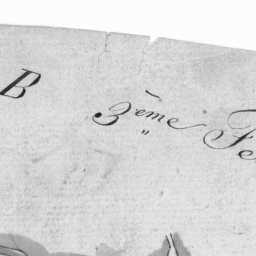 B 3ème